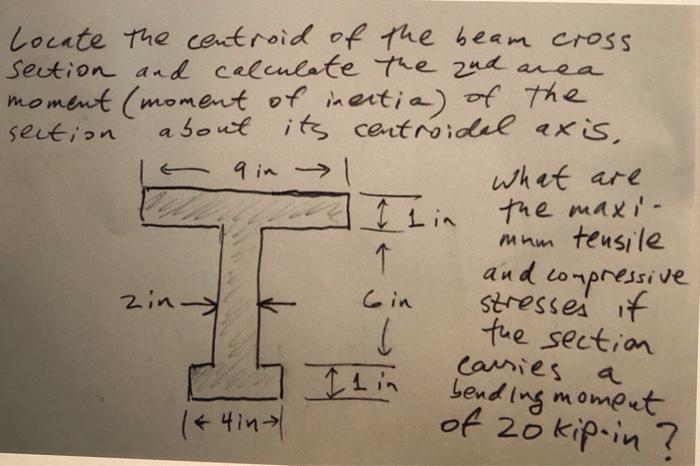 Locate the centroid of the beam cross
section and calculate the 2nd area
moment (moment of inertia) of the
section about its centroidal axis.
9 in
1 in
2 in
6 in
1 in
4 in
What are
the maxi-
mum tensile
and compressive
stresses if
the section
carries a
bending moment
of 20 kip·in?